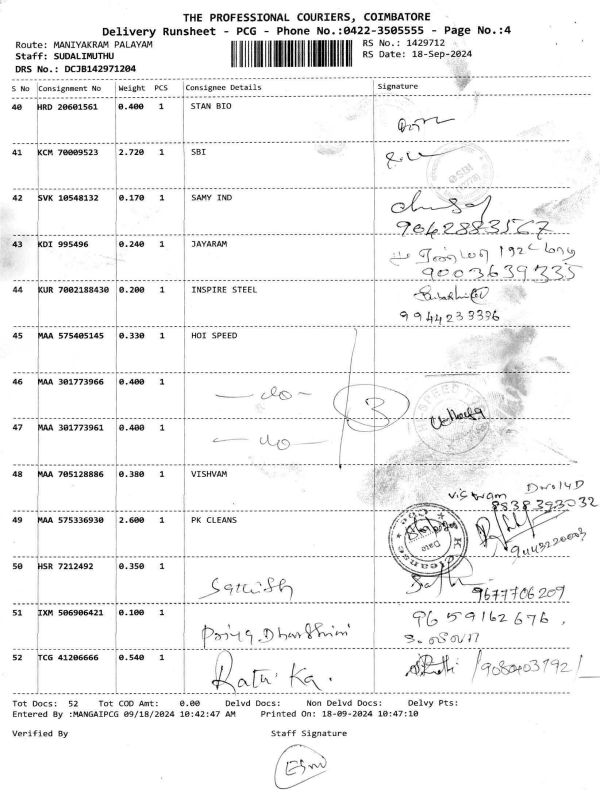 THE PROFESSIONAL COURIERS, COIMBATORE
Delivery Runsheet - PCG - Phone No.:0422-3505555 - Page No.:4
Route: MANIYAKRAM PALAYAM RS No.: 1429712
Staff: SUDALIMUTHU RS Date: 18-Sep-2024
DRS No.: DCJB142971204
S No Consignment No Weight PCS Consignee Details Signature
40 HRD 20601561 0.400 1 STAN BIO
41 KCM 70009523 2.720 1 SBI
42 SVK 10548132 0.170 1 SAMY IND
9042883567
43 KDI 995496 0.240 1 JAYARAM
9003639335
44 KUR 7002188430 0.200 1 INSPIRE STEEL
9944233396
45 MAA 575405145 0.330 1 HOI SPEED
46 MAA 301773966 0.400 1 -do-
3
47 MAA 301773961 0.400 1 -do-
48 MAA 705128886 0.380 1 VISHVAM
8838393032
49 MAA 575336930 2.600 1 PK CLEANS
9443220003
50 HSR 7212492 0.350 1 Sathish
9677706209
51 IXM 506906421 0.100 1 Priya Dharshini 9659162676,
52 TCG 41206666 0.540 1 Rathi Ka.
Tot Docs: 52 Tot COD Amt: 0.00 Delvd Docs: Non Delvd Docs: Delvy Pts:
Entered By :MANGAIPCG 09/18/2024 10:42:47 AM Printed On: 18-09-2024 10:47:10
Verified By Staff Signature